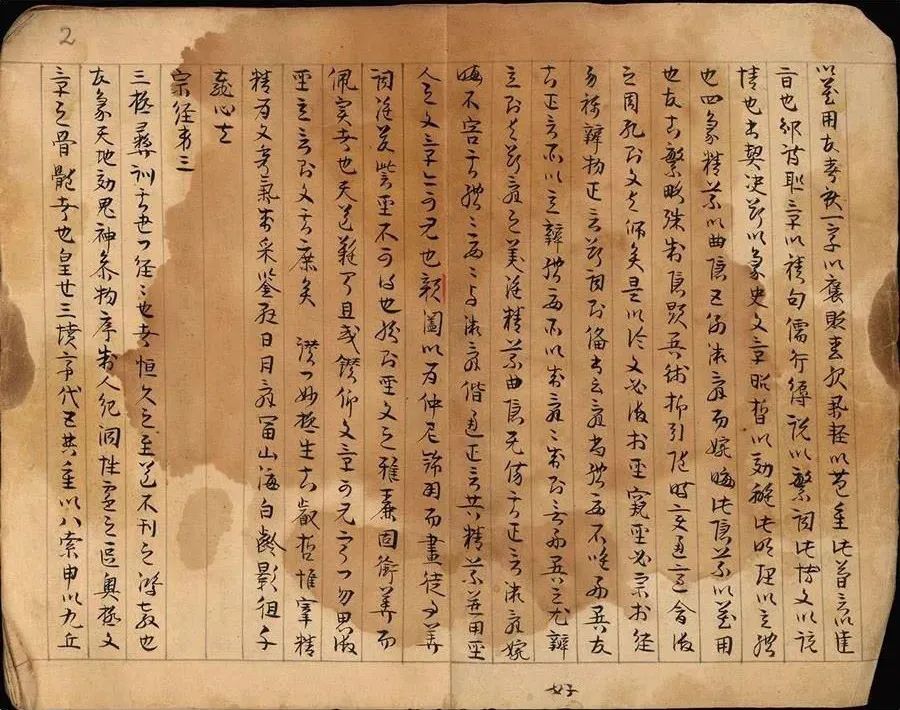 2
以藏用故春秋一字以褒貶喪服舉輕以苞重此簡言以達
旨也邠詩聯章以積句儒行縟說以繁詞此博文以該
情也書契決斷以象史文章昭晢以効離此明理以立體
也四象精義以曲隱五例微辭而婉晦此隱義以藏用
也故知繁略殊制隱顯異術抑引隨時變通適會徵
之周孔則文有師矣是以論文必徵於聖窺聖必宗於經
易稱辯物正言斷詞則備書云辭尚體要不唯好異故
知正言所以立辯體要所以成辭々成則無好異之尤辯
立則有斷辭之美雖精義曲隱無傷其正言微辭婉
晦不害其體要々与微辭偕通正言共精義並用聖
人之文章亦可見也顏闔以為仲尼飾羽而畫徒事華
詞雖欲訾聖不可得也然則聖文之雅麗固銜華而
佩實者也天道難聞且或鑽仰文章可見寧曰勿思徵
聖立言則文其庶矣 讚曰妙極生知叡哲惟宰精
精為文秀氣成采鑒懸日月辭富山海百齡影徂千
載心在
宗經第三
三極彝訓其世曰經々也者恒久之至道不刊之鴻教也
故象天地効鬼神參物序制人紀洞性靈之區奧極文
章之骨髓者也皇世三墳帝代五典重以八索申以九丘
好